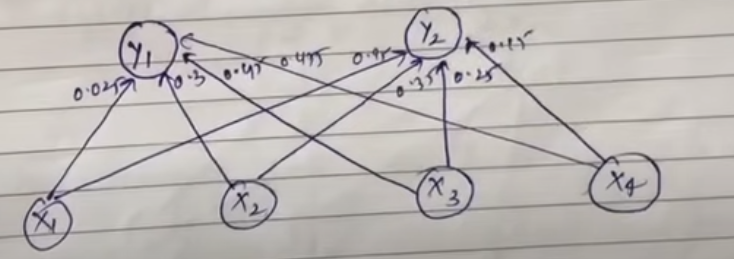 Y1 Y2
0.025 0.3 0.45 0.475 0.45 0.35 0.25 0.15
X1 X2 X3 X4